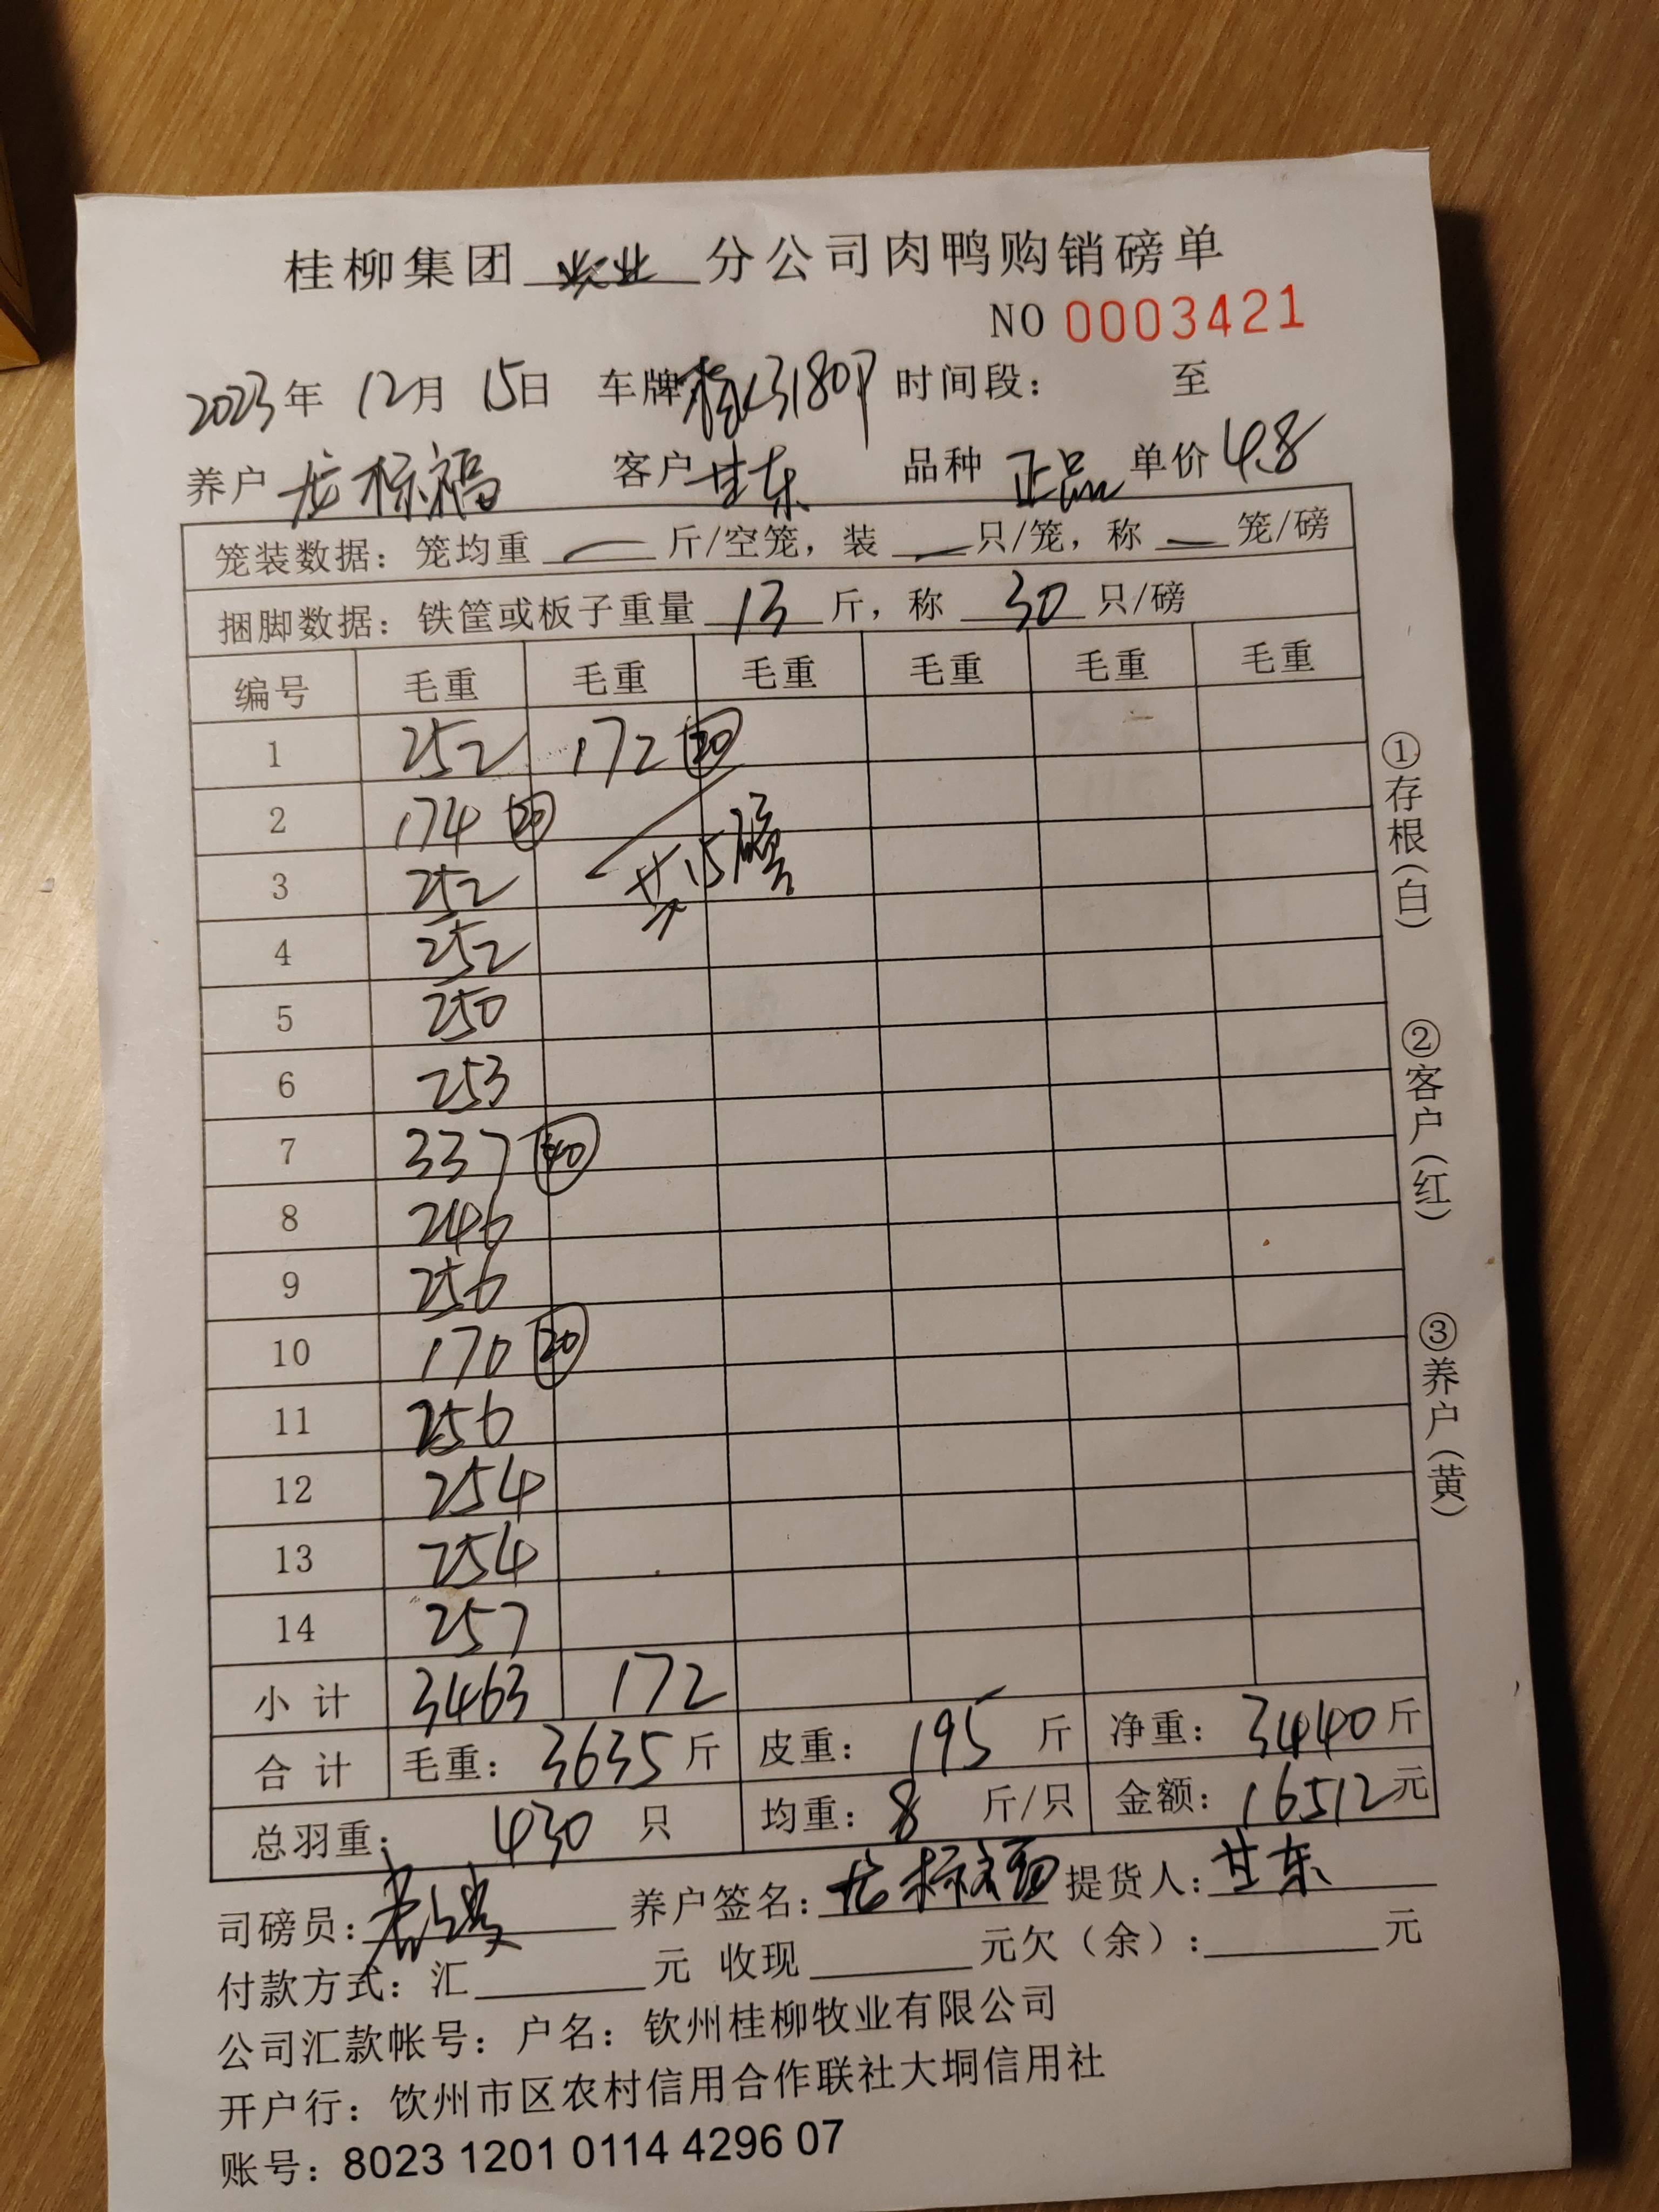 桂柳集团 牧业 分公司肉鸭购销磅单
NO 0003421
2023年 12月 15日 车牌 桂L3180P 时间段： 至
养户 龙标福 客户 甘东 品种 正品 单价 4.8
笼装数据：笼均重 — 斤/空笼，装 — 只/笼，称 — 笼/磅
捆脚数据：铁筐或板子重量 13 斤，称 30 只/磅
编号 毛重 毛重 毛重 毛重 毛重 毛重
1 252 172 20
2 174 20
共15磅
3 252
4 252
5 250
6 253
7 337 40
8 246
9 256
10 170 20
11 256
12 254
13 254
14 257
小计 3463 172
合计 毛重：3635斤 皮重：195斤 净重：3440斤
总羽重：430只 均重：8斤/只 金额：16512元
司磅员： 养户签名：龙标福 提货人：甘东
付款方式：汇 元 收现 元欠（余）： 元
公司汇款帐号：户名：钦州桂柳牧业有限公司
开户行：钦州市区农村信用合作联社大垌信用社
账号：8023 1201 0114 4296 07
①存根（白）
②客户（红）
③养户（黄）